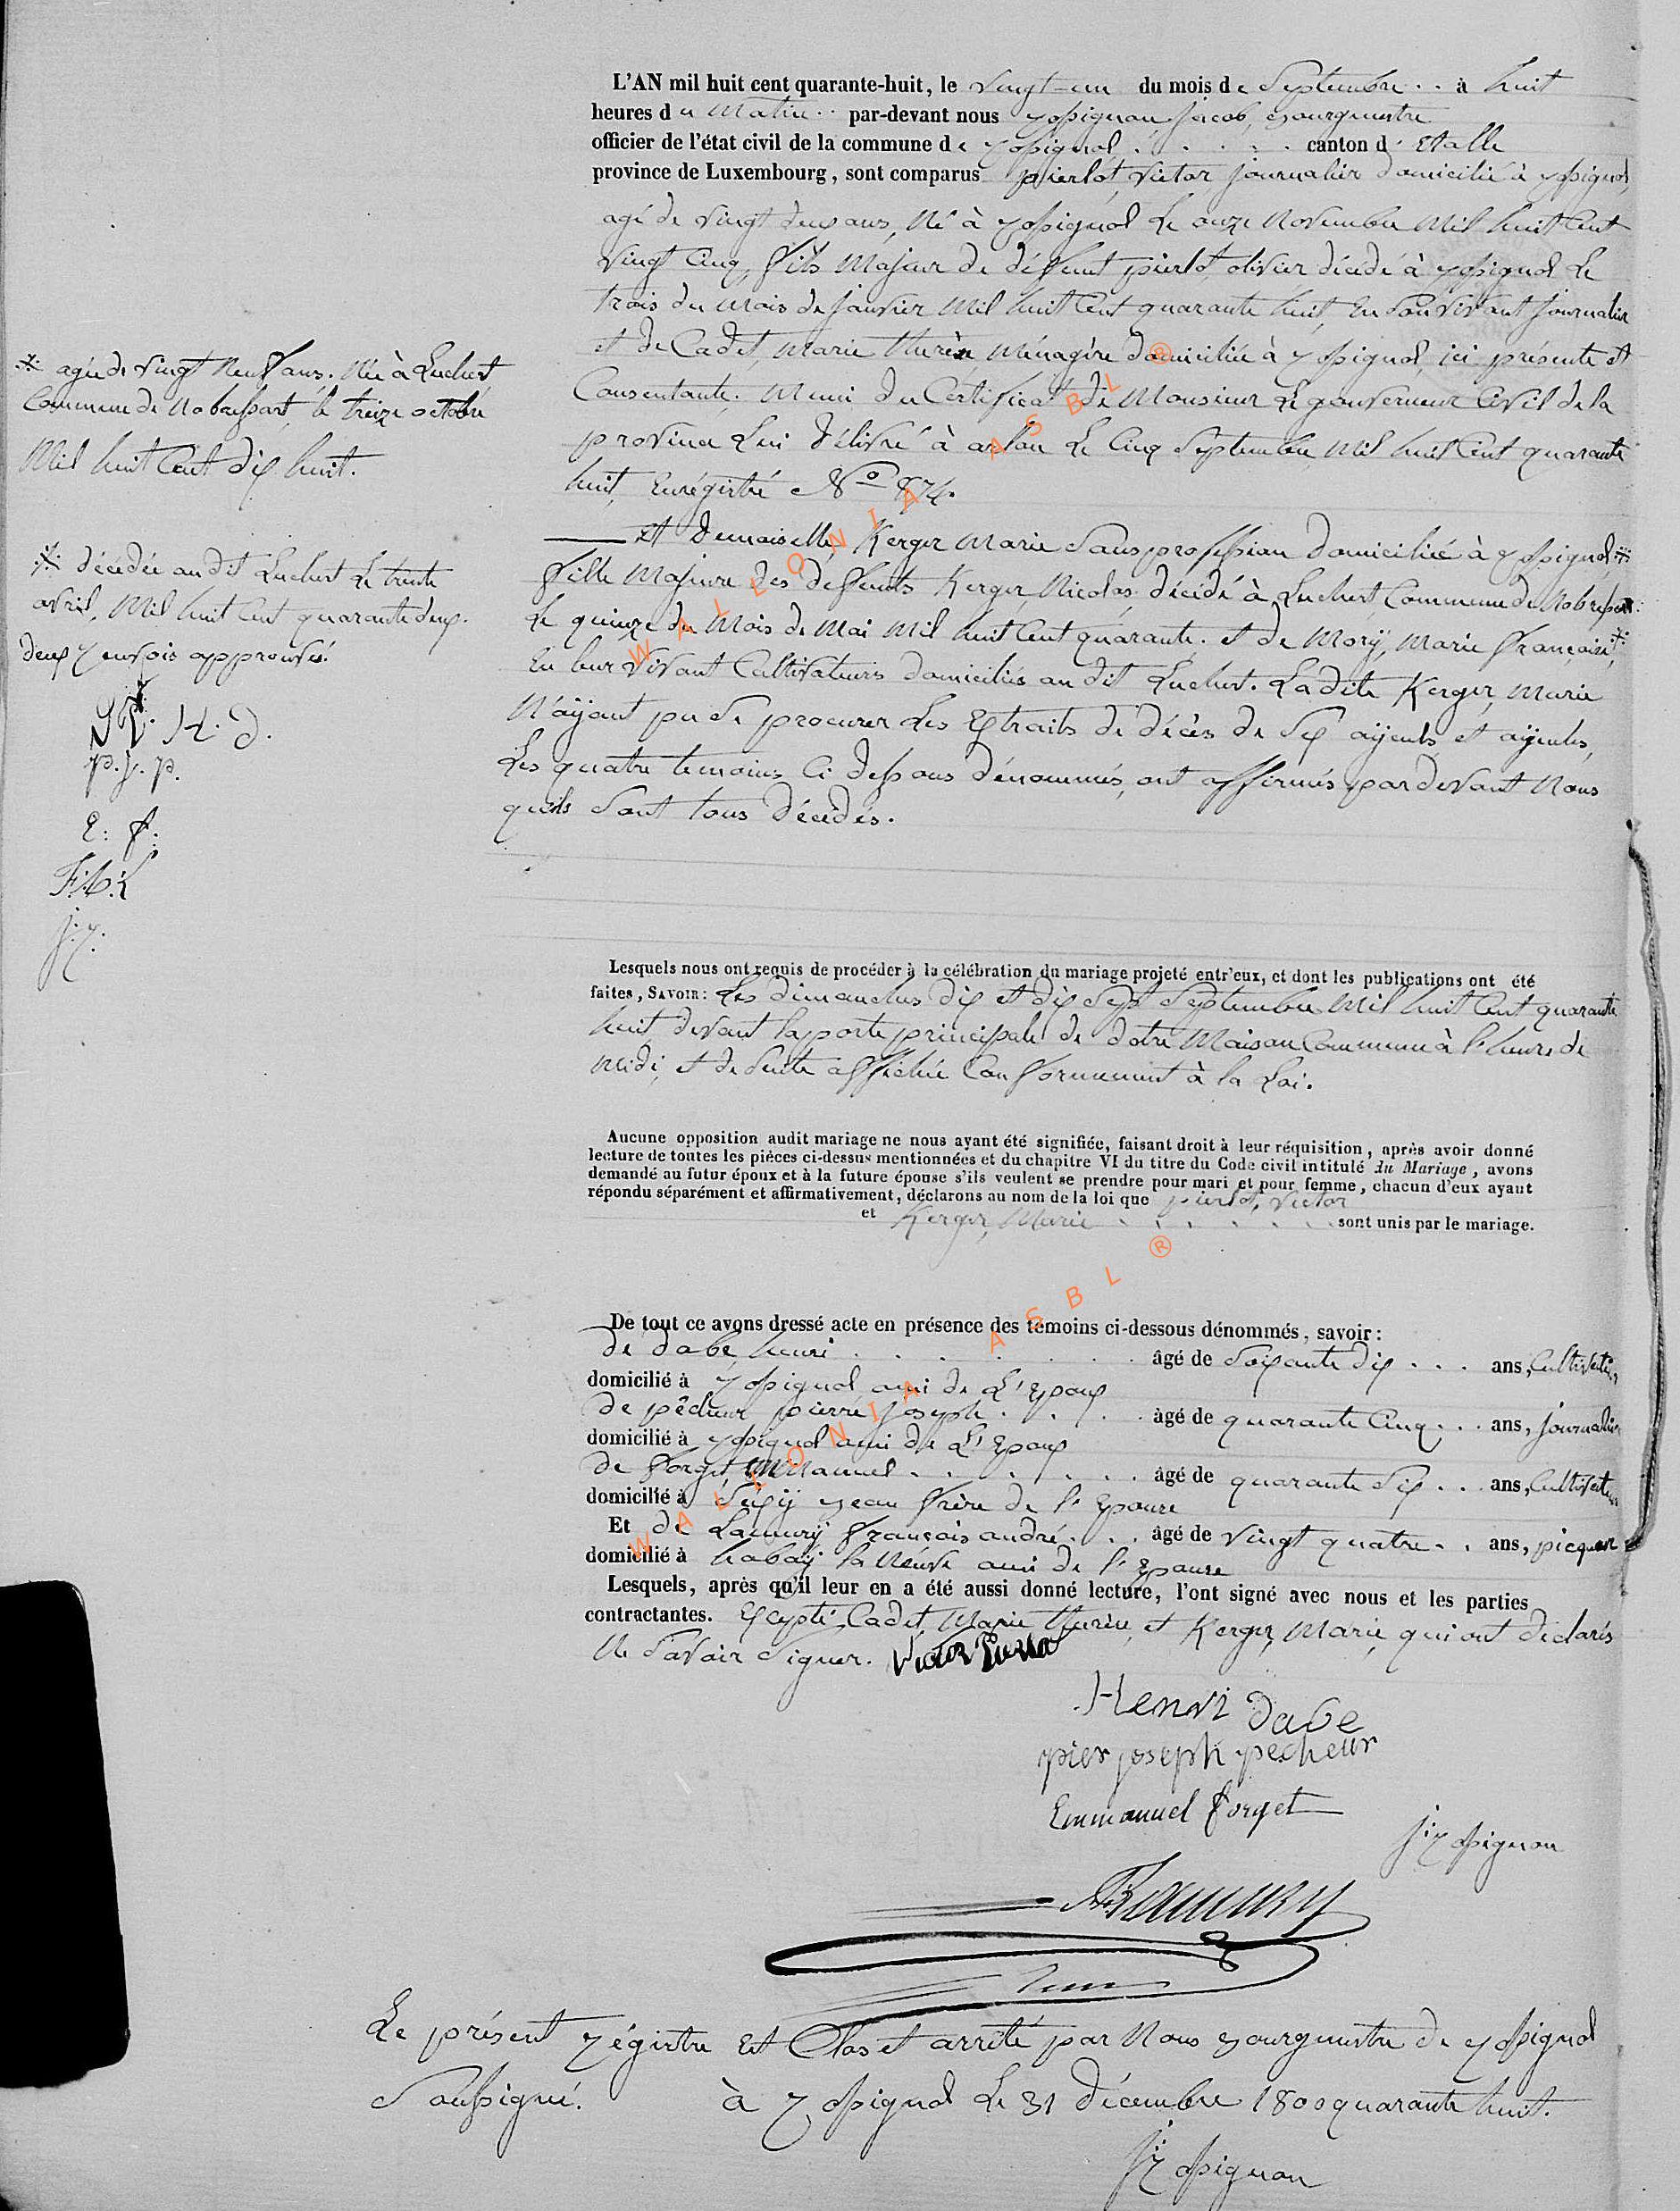 L'AN mil huit cent quarante-huit, le vingt-un du mois de Septembre .. à huit
heures du Matin .. par-devant nous rossignon Jacob, Bourgmestre
officier de l'état civil de la commune de rossignol . . . . . canton d' Etalle
province de Luxembourg, sont comparus pierlot, Victor, journalier domicilié à rossignol,
agé de vingt deux ans, Né à rossignol Le onze Novembre Mil huit Cent
vingt Cinq, fils Majeur de déffunt pierlot, olivier décédé à rossignol Le
trois du mois de janvier Mil huit Cent quarante huit, En son vivant journalier
et de Cadet, Marie thérèse Ménagère domiciliée à rossignol, ici présente et
Consentante. Muni du Certificat de Monsieur Le gouverneur Civil de la
province Lui délivré à arlon Le Cinq Septembre Mil huit Cent quarante
huit, Enrégistré No 874.
Et Demoiselle Kerger Marie Sans profession domiciliée à rossignol
※ agée de vingt Neuf ans. Née à Luchert
Commune de Nobressart, le treize octobre
Mil huit Cent dix huit.
fille Majeure des deffunts Kerger, Nicolas décédé à Luchert Commune de Nobressart
Le quinze du Mois de Mai Mil huit Cent quarante. et de Morÿ, Marie françoise,
※ décédée au dit Luchert Le trente
avril, Mil huit Cent quarante deux.
deux renvois approuvés.
P. H. D.
p. j. p.
E: f:
F. L.
j. r.
En leur vivant Cultivateurs domiciliés au dit Luchert. Ladite Kerger, Marie
N'aÿant pu Se procurer Les Extraits de décès de Ses aÿeuls et aÿeules,
Les quatre temoins Ci dessous dénommés, ont affirmés pardevant Nous
qu'ils Sont tous décédés.
Lesquels nous ont requis de procéder à la célébration du mariage projeté entr'eux, et dont les publications ont été
faites, SAVOIR: Les dimanches dix et dix Sept Septembre Mil huit Cent quarante
huit, devant la porte principale de Notre Maison Commune à l'heure de
midi, et de Suite affichée Conformement à la Loi.
Aucune opposition audit mariage ne nous ayant été signifiée, faisant droit à leur réquisition, après avoir donné
lecture de toutes les pièces ci-dessus mentionnées et du chapitre VI du titre du Code civil intitulé du Mariage, avons
demandé au futur époux et à la future épouse s'ils veulent se prendre pour mari et pour femme, chacun d'eux ayant
répondu séparément et affirmativement, déclarons au nom de la loi que pierlot, Victor
et Kerger, Marie . . . . . . sont unis par le mariage.
De tout ce avons dressé acte en présence des témoins ci-dessous dénommés, savoir:
de dabe, henri . . . . . . âgé de Soixante dix . . . ans, Cultivateur
domicilié à rossignol ami de L'Epoux
de pêcheur pierre joseph . . . . âgé de quarante Cinq . . . ans, journalier
domicilié à rossignol ami de L'Epoux
de forget, Emmanuel . . . . . . âgé de quarante Six . . ans, Cultivateur
domicilié à Suxÿ Beau frère de l'Epouse
Et de Lamurÿ françois andré . . . âgé de vingt quatre . . ans, picqueur
domicilié à habaÿ la Neuve ami de l'Epouse
Lesquels, après qu'il leur en a été aussi donné lecture, l'ont signé avec nous et les parties
contractantes. Excepté Cadet, Marie thérèse, et Kerger, Marie, qui ont déclarés
Ne Savoir Signer. Victor Pierlot
Henri dabe
pier joseph pecheur
Emmanuel Forget
j: rossignon
Lamury
Le présent régistre Est Clos et arrêté par Nous Bourgmestre de rossignol
Soussigné. à rossignol Le 31 décembre 1800 quarante huit.
j: rossignon
WALLONIA ASBL ®
WALLONIA ASBL ®